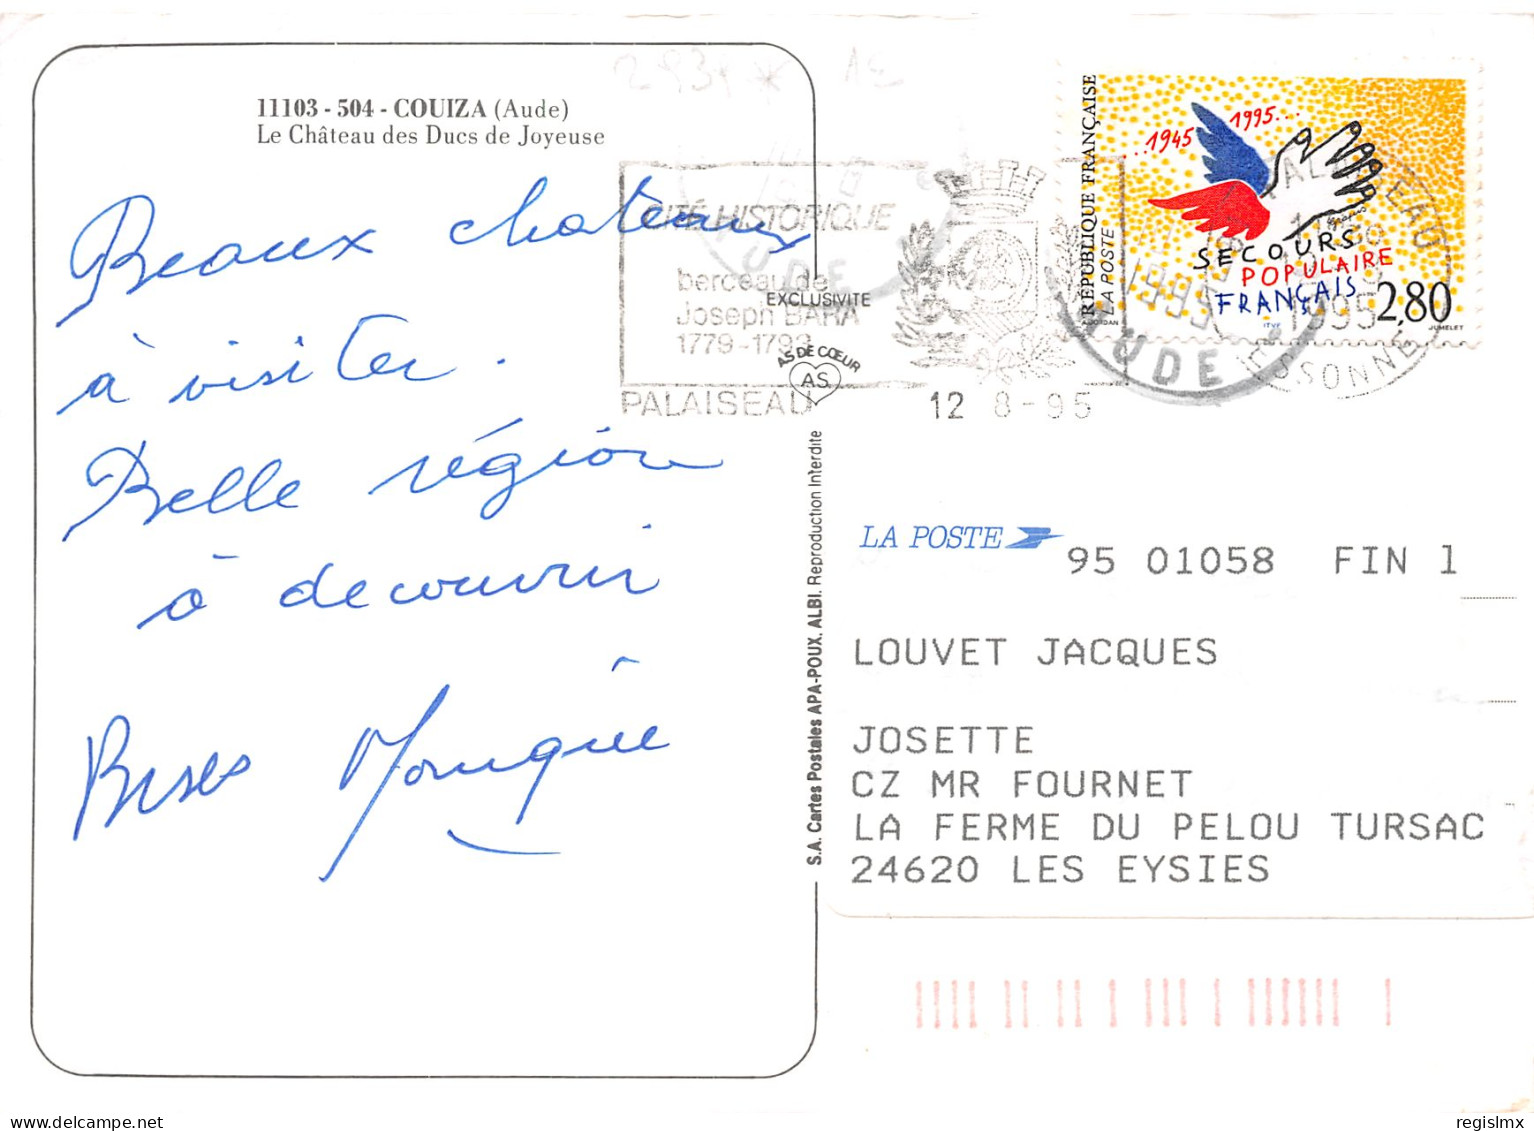 2934 * AE
11103 - 504 - COUIZA (Aude)
Le Château des Ducs de Joyeuse
Beaux chateaux
à visiter.
Belle région
à decouvrir
Bises Monquie
CITÉ HISTORIQUE
berceau de
Joseph BARA
1779-1793
PALAISEAU
12 8-95
EXCLUSIVITE
AS DE CŒUR
AS
S.A. Cartes Postales APA-POUX. ALBI. Reproduction Interdite
RÉPUBLIQUE FRANÇAISE
LA POSTE
..1945 1995...
SECOURS
POPULAIRE
FRANÇAIS
2,80
JORDAN
ITVF
JUMELET
PALAISEAU
1995
ESSONNE
AUDE
1995
AUDE
LA POSTE
95 01058 FIN 1
LOUVET JACQUES
JOSETTE
CZ MR FOURNET
LA FERME DU PELOU TURSAC
24620 LES EYSIES
regislmx